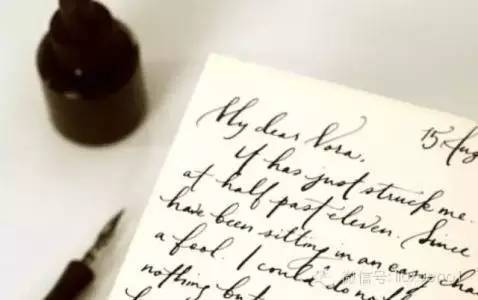 15 Aug
My dear Nora,
It has just struck me.
at half past eleven. Since
have been sitting in an easy cha
a fool. I could do no
nothing but
微信号: